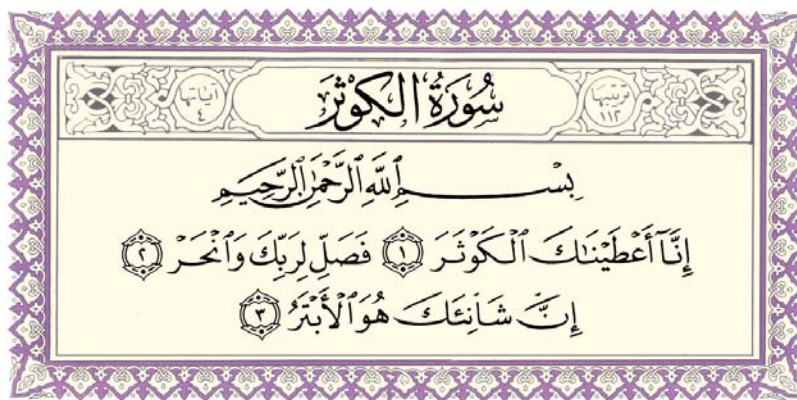 ترتيبها ١١٢
سُورَةُ الكَوْثَرَ
آياتها ٤
بِسْمِ ٱللَّهِ ٱلرَّحْمَٰنِ ٱلرَّحِيمِ
إِنَّآ أَعْطَيْنَاكَ ٱلْكَوْثَرَ ١ فَصَلِّ لِرَبِّكَ وَٱنْحَرْ ٢
إِنَّ شَانِئَكَ هُوَ ٱلْأَبْتَرُ ٣